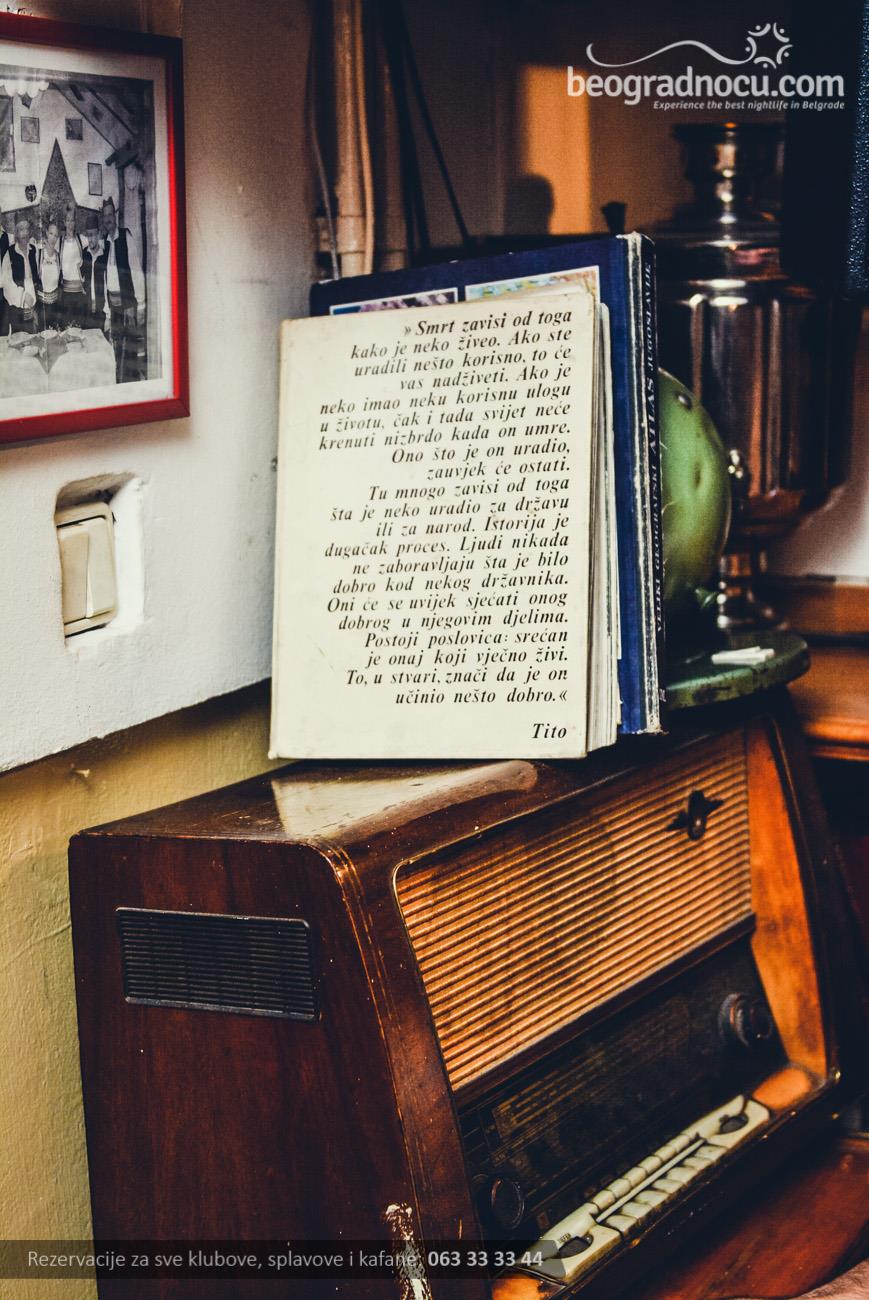 beogradnocu.com
Experience the best nightlife in Belgrade
» Smrt zavisi od toga
kako je neko živeo. Ako ste
uradili nešto korisno, to će
vas nadživeti. Ako je
neko imao neku korisnu ulogu
u životu, čak i tada svijet neće
krenuti nizbrdo kada on umre.
Ono što je on uradio,
zauvjek će ostati.
Tu mnogo zavisi od toga
šta je neko uradio za državu
ili za narod. Istorija je
dugačak proces. Ljudi nikada
ne zaboravljaju šta je bilo
dobro kod nekog državnika.
Oni će se uvijek sjećati onog
dobrog u njegovim djelima.
Postoji poslovica: srećan
je onaj koji vječno živi.
To, u stvari, znači da je on
učinio nešto dobro.«
Tito
VELIKI GEOGRAFSKI ATLAS JUGOSLAVIJE
Rezervacije za sve klubove, splavove i kafane: 063 33 33 44